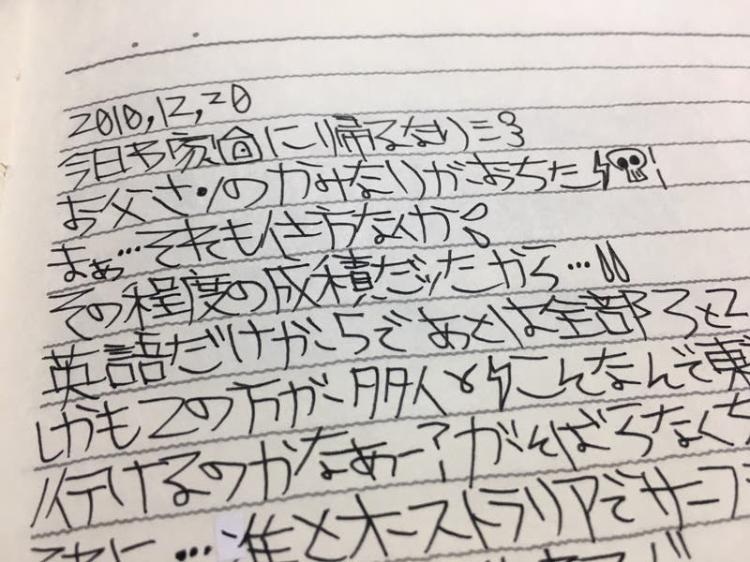 2010,12,20
今日も家に帰るなり
お父さんのかみなりがおちた
まぁ…それもしょうがないか
その程度の成績だったから…
英語だけが5であとは全部3と2
しかも2の方が多い こんなんで
行けるのかなあー? がんばらなくち
…誰とオーストラリアでサーフ